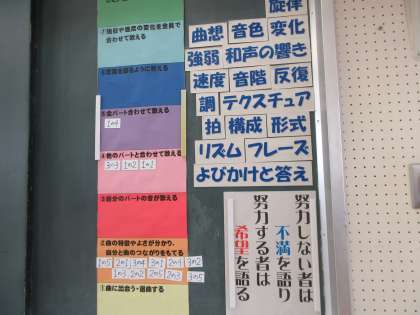 ⑦強弱や速度の変化を全員で
合わせて歌える
⑤全パート合わせて歌える
1の4
④他のパートと合わせて歌える
3の3 1の2 1の1
③自分のパートの音が歌える
②曲の特徴やよさが分かり、
自分と曲のつながりをもてる
1の5 2の1 3の4 3の1 2の4 3の2
1の3 2の2 2の5 2の3 3の5
①曲に出会う・選曲する
旋律
曲想 音色 変化
強弱 和声の響き
速度 音階 反復
調 テクスチュア
拍 構成 形式
リズム フレーズ
よびかけと答え
努力しない者は
不満を語り
努力する者は
希望を語る